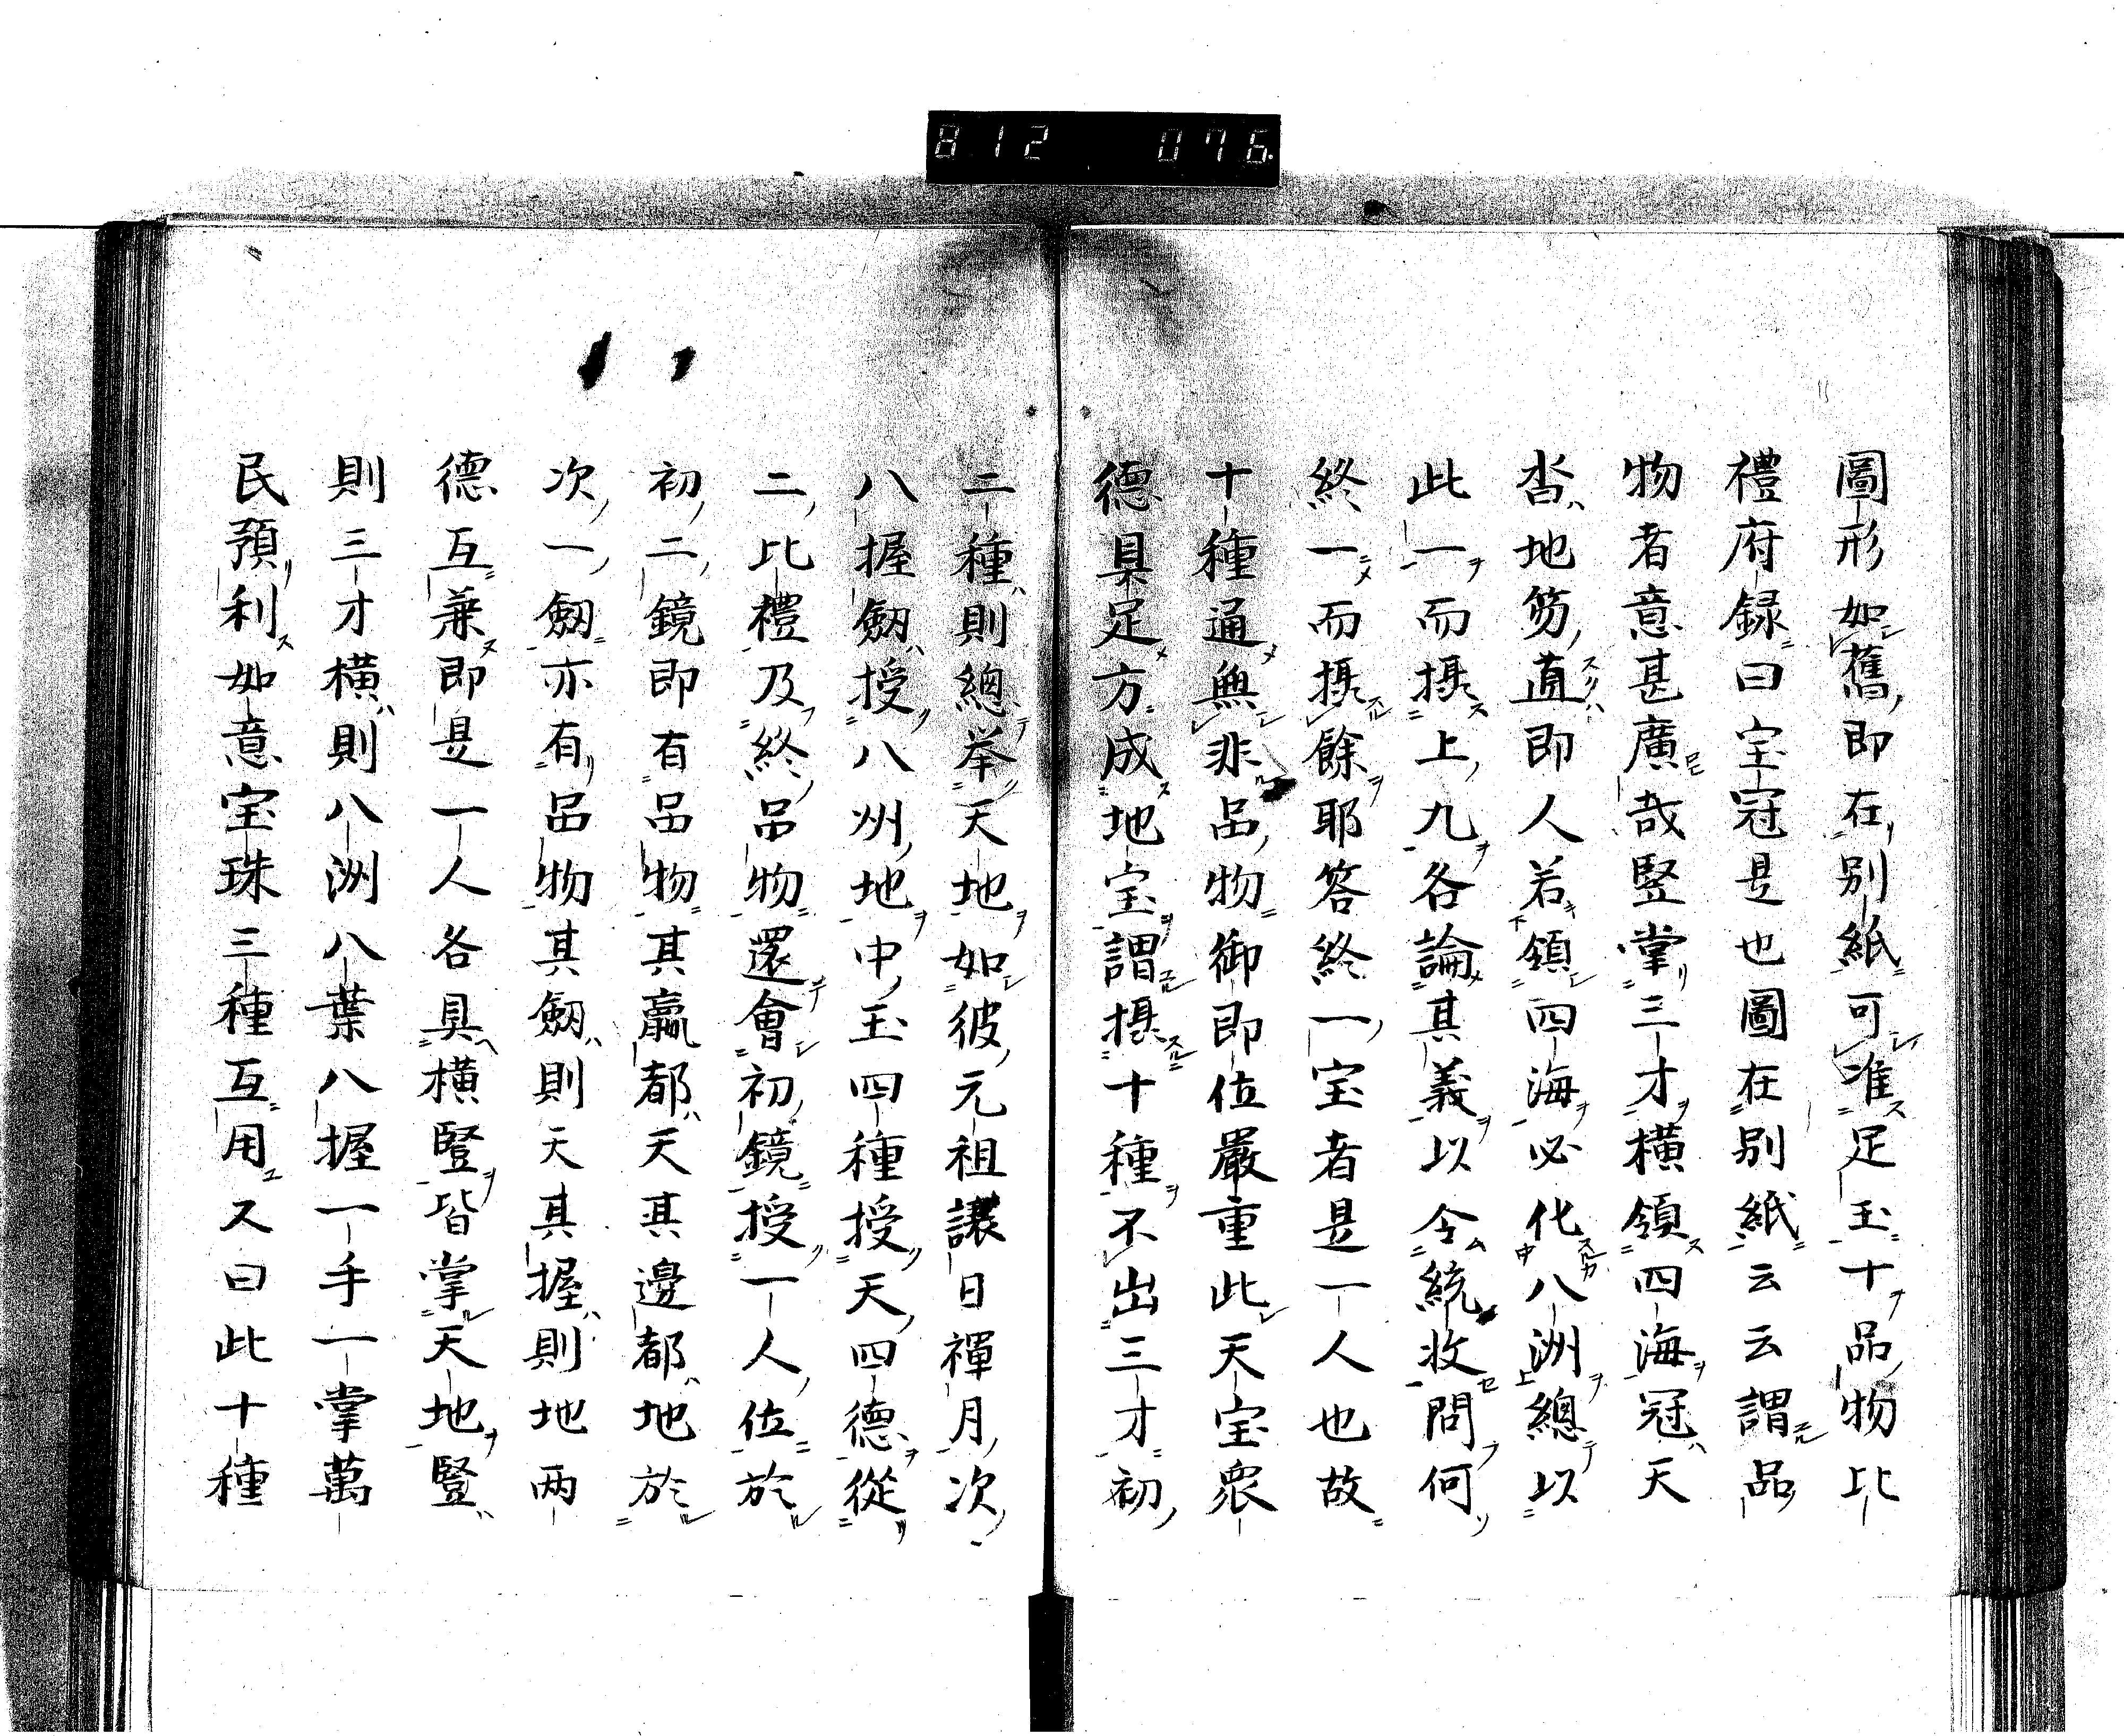 812 076
圖形如舊即在別紙可准足玉十品物比
禮府録曰宝冠是也圖在別紙云云謂品
物者意甚廣哉竪掌三才横領四海冠天
沓地笏直即人若領四海必化八洲總以
此一而摂上九各論其義以令統收問何
終一而摂餘耶答終一宝者是一人也故
十種通無非品物御即位嚴重此天宝衆
德具足方成地宝謂摂十種不出三才初
二種則總举天地如彼元祖讓日禪月次
八握劔授八州地中玉四種授天四德從
二比禮及終品物還會初鏡授一人位於
初二鏡即有品物其羸都天其邊都地於
次一劔亦有品物其劔則天其握則地两
德互兼即是一人各具横竪皆掌天地竪
則三才横則八洲八葉八握一手一掌萬
民預利如意宝珠三種互用又曰此十種